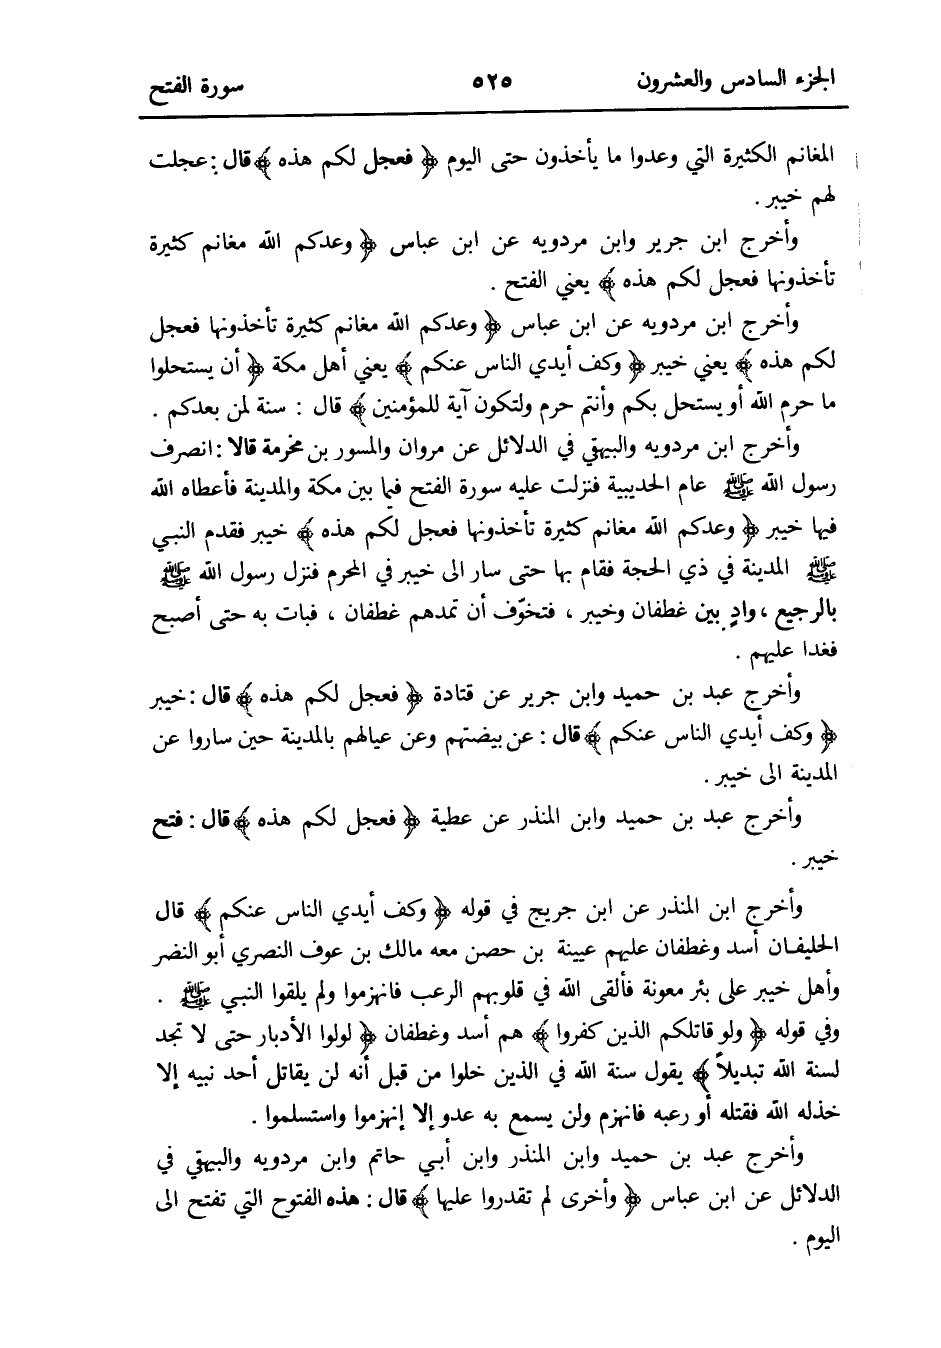 الجزء السادس والعشرون ٥٢٥ سورة الفتح
المغانم الكثيرة التي وعدوا ما يأخذون حتى اليوم ﴿ فعجل لكم هذه ﴾ قال : عجلت
لهم خيبر .
وأخرج ابن جرير وابن مردويه عن ابن عباس ﴿ وعدكم الله مغانم كثيرة
تأخذونها فعجل لكم هذه ﴾ يعني الفتح .
وأخرج ابن مردويه عن ابن عباس ﴿ وعدكم الله مغانم كثيرة تأخذونها فعجل
لكم هذه ﴾ يعني خيبر ﴿ وكف أيدي الناس عنكم ﴾ يعني أهل مكة ﴿ أن يستحلوا
ما حرم الله أو يستحل بكم وأنتم حرم ولتكون آية للمؤمنين ﴾ قال : سنة لمن بعدكم .
وأخرج ابن مردويه والبيهقي في الدلائل عن مروان والمسور بن مخرمة قالا : انصرف
رسول الله ﷺ عام الحديبية فنزلت عليه سورة الفتح فيما بين مكة والمدينة فأعطاه الله
فيها خيبر ﴿ وعدكم الله مغانم كثيرة تأخذونها فعجل لكم هذه ﴾ خيبر فقدم النبي
ﷺ المدينة في ذي الحجة فقام بها حتى سار الى خيبر في المحرم فنزل رسول الله ﷺ
بالرجيع ، وادٍ بين غطفان وخيبر ، فتخوّف أن تمدهم غطفان ، فبات به حتى أصبح
فغدا عليهم .
وأخرج عبد بن حميد وابن جرير عن قتادة ﴿ فعجل لكم هذه ﴾ قال : خيبر
﴿ وكف أيدي الناس عنكم ﴾ قال : عن بيضتهم وعن عيالهم بالمدينة حين ساروا عن
المدينة الى خيبر .
وأخرج عبد بن حميد وابن المنذر عن عطية ﴿ فعجل لكم هذه ﴾ قال : فتح
خيبر .
وأخرج ابن المنذر عن ابن جريج في قوله ﴿ وكف أيدي الناس عنكم ﴾ قال
الحليفان أسد وغطفان عليهم عيينة بن حصن معه مالك بن عوف النصري أبو النضر
وأهل خيبر على بئر معونة فألقى الله في قلوبهم الرعب فانهزموا ولم يلقوا النبي ﷺ .
وفي قوله ﴿ ولو قاتلكم الذين كفروا ﴾ هم أسد وغطفان ﴿ لولوا الأدبار حتى لا تجد
لسنة الله تبديلاً ﴾ يقول سنة الله في الذين خلوا من قبل أنه لن يقاتل أحد نبيه إلا
خذله الله فقتله أو رعبه فانهزم ولن يسمع به عدو إلا إنهزموا واستسلموا .
وأخرج عبد بن حميد وابن المنذر وابن أبي حاتم وابن مردويه والبيهقي في
الدلائل عن ابن عباس ﴿ وأخرى لم تقدروا عليها ﴾ قال : هذه الفتوح التي تفتح الى
اليوم .